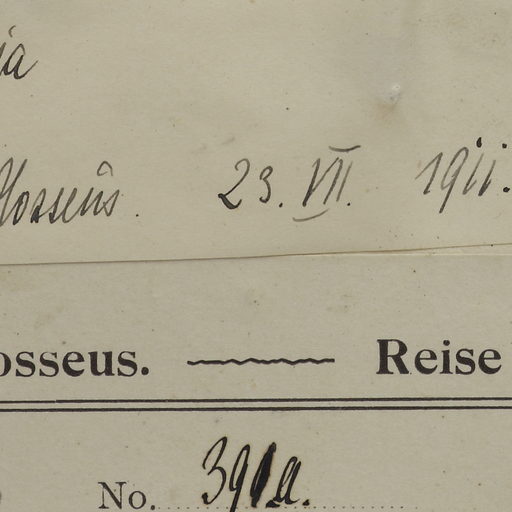 ia
Kosseus. 23. VII. 1911.
osseus. Reise
No. 391a.